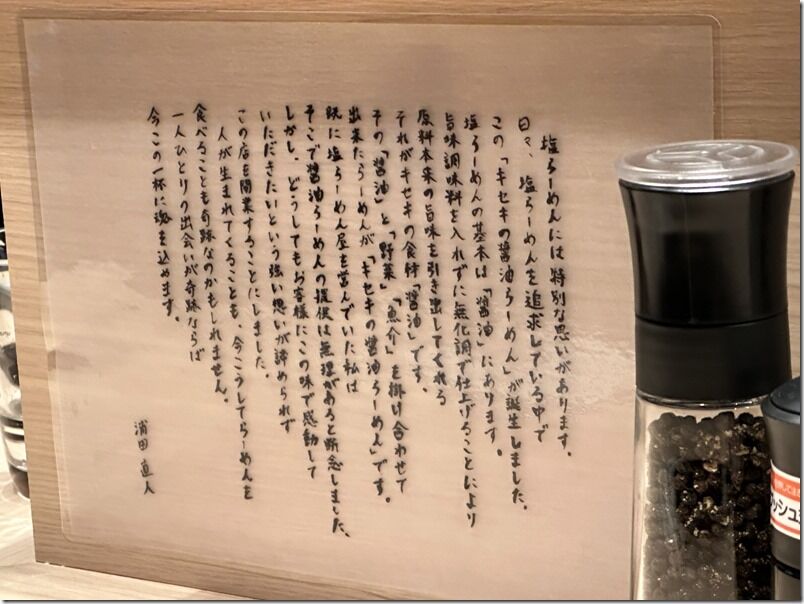 塩らーめんには特別な思いがあります。
日々、塩らーめんを追求している中で
この「キセキの醤油らーめん」が誕生しました。
塩らーめんの基本は「醤油」にあります。
旨味調味料を入れずに無化調で仕上げることにより
原料本来の旨味を引き出してくれる
それがキセキの食材「醤油」です。
その「醤油」と「野菜」「魚介」を掛け合わせて
出来たらーめんが「キセキの醤油らーめん」です。
既に塩らーめん屋を営んでいた私は
そこで醤油らーめんの提供は無理があると断念しました、
しかし、どうしてもお客様にこの味で感動して
いただきたいという強い想いが諦められず
この店を開業することにしました。
人が生まれてくることも、今こうしてらーめんを
食べることも奇跡なのかもしれません。
一人ひとりの出会いが奇跡ならば
今この一杯に魂を込めます。
浦田直人